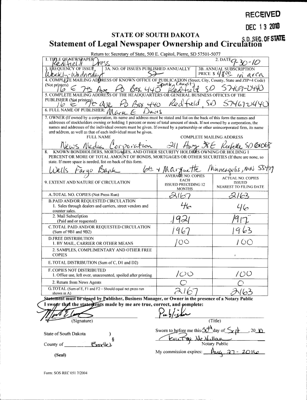 RECEIVED
DEC 13 2010
S.D. SEC. OF STATE
STATE OF SOUTH DAKOTA
Statement of Legal Newspaper Ownership and Circulation
Return to: Secretary of State, 500 E. Capitol, Pierre, SD 57501-5077
1. TITLE OF NEWSPAPER
Redfield Press
2. DATE 9-30-10
3. FREQUENCY OF ISSUE
Weekly-Wednesday
3A. NO. OF ISSUES PUBLISHED ANNUALLY
52
3B. ANNUAL SUBSCRIPTION
4. COMPLETE MAILING ADDRESS OF KNOWN OFFICE OF PUBLICATION (Street, City, County, State and ZIP+4 Code)
(Not printers)
16 E 7th Ave PO Box 440 Redfield SD 57469-0440
5. COMPLETE MAILING ADDRESS OF THE HEADQUARTERS OR GENERAL BUSINESS OFFICES OF THE
PUBLISHER (Not printer)
16 E 7th Ave PO Box 440 Redfield, SD 57469-0440
6. FULL NAME OF PUBLISHER:
7. OWNER (If owned by a corporation, its name and address must be stated and list on the back of this form the names and
addresses of stockholders owning or holding 1 percent or more of total amount of stock. If not owned by a corporation, the
names and addresses of the individual owners must be given. If owned by a partnership or other unincorporated firm, its name
and address, as well as that of each individual must be given.
FULL NAME
COMPLETE MAILING ADDRESS
News Media Corporation 211 Hwy 38 E Rochelle,
8. KNOWN BONDHOLDERS, MORTGAGEES, AND OTHER SECURITY HOLDERS OWNING OR HOLDING 1
PERCENT OR MORE OF TOTAL AMOUNT OF BONDS, MORTGAGES OR OTHER SECURITIES (If there are none, so
state. If more space is needed, list on back of this form.
Wells Fargo Bank Marquette Minneapolis, MN
9. EXTENT AND NATURE OF CIRCULATION
AVERAGE NO. COPIES EACH
ISSUES PRECEDING 12
MONTHS
ACTUAL NO. COPIES
ISSUED
NEAREST TO FILING DATE
A. TOTAL NO. COPIES (Net Press Run)
2167
2163
B. PAID AND/OR REQUESTED CIRCULATION
1. Sales through dealers and carriers, street vendors and
counter sales.
46
46
2. Mail Subscription
(Paid and or requested)
1921
1917
C. TOTAL PAID AND/OR REQUESTED CIRCULATION
(Sum of 9B1 and 9B2)
1967
1963
D. FREE DISTRIBUTION
1. BY MAIL, CARRIER OR OTHER MEANS
100
100
2. SAMPLES, COMPLIMENTARY AND OTHER FREE
COPIES
E. TOTAL DISTRIBUTION (Sum of C, D1 and D2)
F. COPIES NOT DISTRIBUTED
1. Office use, left over, unaccounted, spoiled after printing
100
100
2. Return from News Agents
0
0
G. TOTAL (Sum of E, F1 and F2 - Should equal net press run
shown in A)
2167
2163
Statement must be signed by Publisher, Business Manager, or Owner in the presence of a Notary Public
I swear that the statements made by me are true, correct, and complete:
Publisher
(Signature)
(Title)
State of South Dakota )
County of
(Seal)
Sworn to before me this 30th day of Sept 2010
Notary Public
My commission expires:
Form: SOS REC 051 7/2004